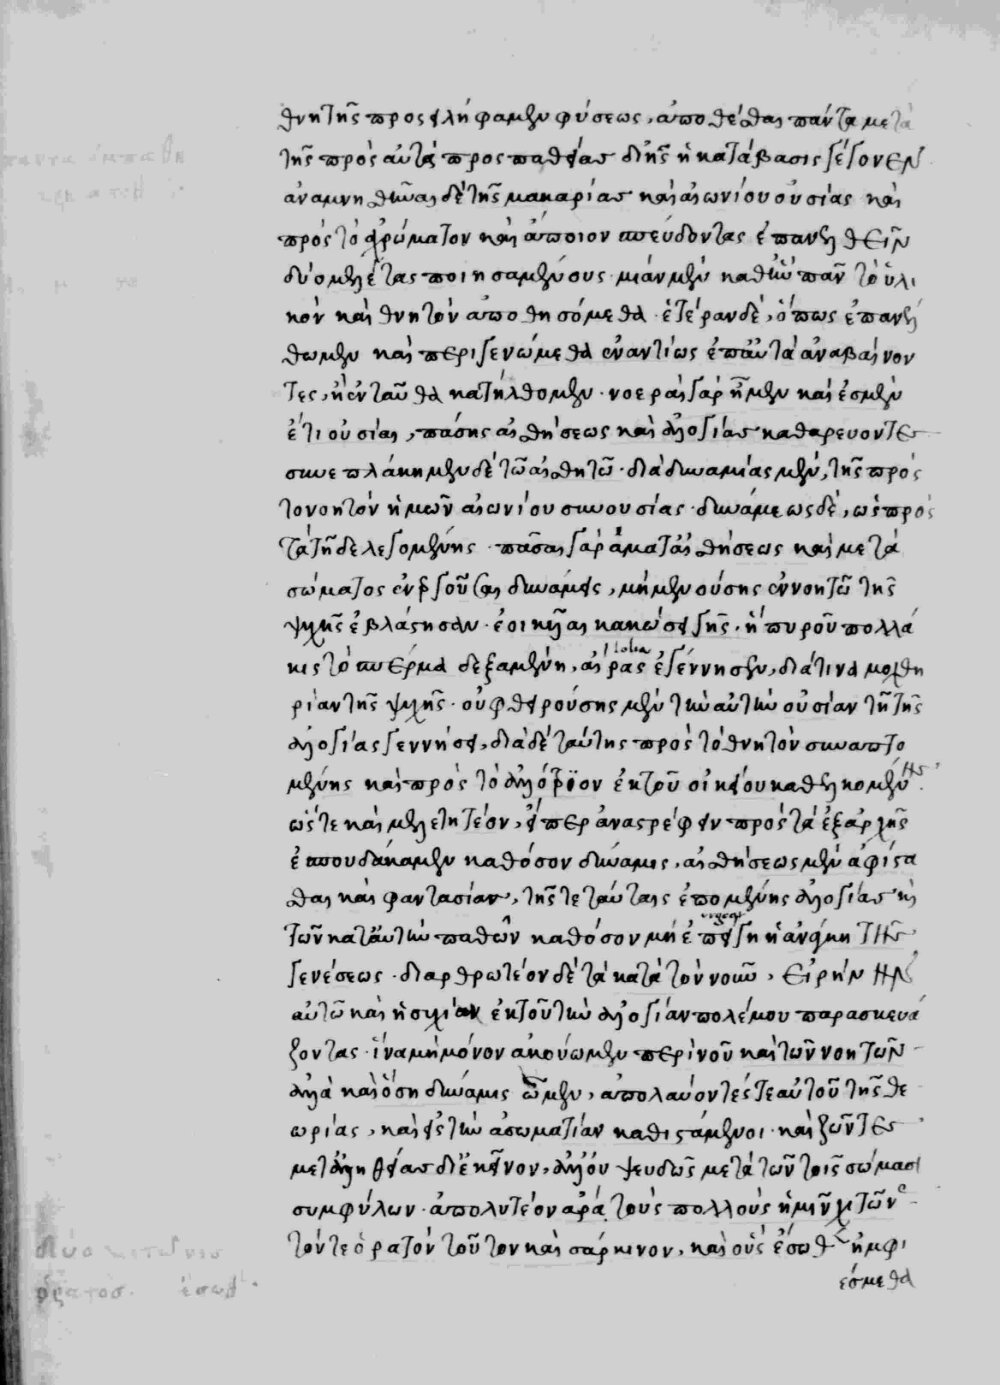 θνητῆς προσειλήφαμεν φύσεως, ἀποθέσθαι πάντα μετὰ
τῆς πρὸς αὐτὰ προσπαθείας δι' ἧς ἡ κατάβασις γέγονεν
ἀναμνησθῆναι δὲ τῆς μακαρίας καὶ αἰωνίου οὐσίας καὶ
πρὸς τὸ ἀχρώματον καὶ ἄποιον σπεύδοντας ἐπανελθεῖν
δύο μελέτας ποιησαμένους· μίαν μὲν καθ' ἣν πᾶν τὸ ὑλι
κὸν καὶ θνητὸν ἀποθησόμεθα· ἑτέραν δὲ, ὅπως ἐπανέλ
θωμεν καὶ περιγενώμεθα ἐναντίως ἐπ' αὐτὰ ἀναβαίνον
τες, ἢ ἐνταῦθα κατήλθομεν· νοεραὶ γὰρ ἦμεν καὶ ἐσμὲν
ἔτι οὐσίαι, πάσης αἰσθήσεως καὶ ἀλογίας καθαρεύοντες
συνεπλάκημεν δὲ τῶ αἰσθητῶ· δι' ἀδυναμίας μὲν, τῆς πρὸς
τὸ νοητὸν ἡμῶν αἰωνίου συνουσίας· δυνάμεως δὲ, ὡς πρὸς
τὰ τῆδε λεγομένης· πᾶσαι γὰρ ἅμα ταῖς αἰσθήσεως καὶ μετὰ
σώματος ἐνεργοῦσαι δυνάμεις, μὴ μενούσης ἐν νοητῶ τῆς
ψυχῆς ἐβλάστησαν· ἐοικυῖαι κακώσει γῆς· ἣ πυροῦ πολλά
κις τὸ σπέρμα δεξαμένη, αἴρας ἐγέννησεν, διά τινα μοχθη
ρίαν τῆς ψυχῆς· οὐ φθειρούσης μὲν τὴν αὐτὴν οὐσίαν τῆ τῆς
ἀλογίας γεννήσει, διὰ δὲ ταύτης πρὸς τὸ θνητὸν συναπτο
μένης καὶ πρὸς τὸ ἀλλότριον ἐκ τοῦ οἰκείου καθελκομένης·
ὥστε καὶ μελετητέον, εἴπερ ἀναστρέφειν πρὸς τὰ ἐξ ἀρχῆς
ἐσπουδάκαμεν καθόσον δύναμις, αἰσθήσεως μὲν ἀφίστα
σθαι καὶ φαντασίας, τῆς τε ταύταις ἑπομένης ἀλογίας καὶ
τῶν κατ' αὐτὴν παθῶν καθόσον μὴ ἐπείγη ἡ ἀνάγκη τῆς
γενέσεως· διαρθρωτέον δὲ τὰ κατὰ τὸν νοῦν, εἰρήνην
αὐτῶ καὶ ἡσυχίαν ἐκ τοῦ πρὸς τὴν ἀλογίαν πολέμου παρασκευά
ζοντας· ἵνα μὴ μόνον ἀκούωμεν περὶ νοῦ καὶ τῶν νοητῶν
ἀλλὰ καὶ ὅση δύναμις ὦμεν, ἀπολαύοντές τε αὐτοῦ τῆς θε
ωρίας, καὶ εἰς τὴν ἀσωματίαν καθιστάμενοι· καὶ ζῶντες
μετ' ἀληθείας δι' ἐκεῖνον, ἀλλ' οὐ ψευδῶς μετὰ τῶν τοῖς σώμασι
συμφύλων· ἀπολυτέον ἄρα τοὺς πολλοὺς ἡμῖν χιτῶνας
τόν τε ὁρατὸν τοῦτον καὶ σάρκινον, καὶ οὓς ἔσωθεν ἠμφι
έσμεθα
δύο χιτῶνες
ὁρατος. ἔσωθεν